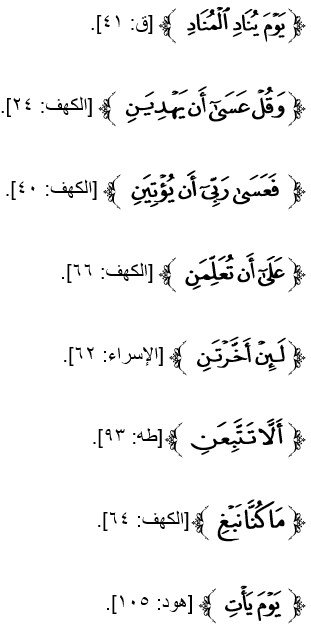 ﴿ يَوْمَ يُنَادِ ٱلْمُنَادِ ﴾ [ق: ٤١].
﴿ وَقُلْ عَسَىٰٓ أَن يَهْدِيَنِ ﴾ [الكهف: ٢٤].
﴿ فَعَسَىٰ رَبِّىٓ أَن يُؤْتِيَنِ ﴾ [الكهف: ٤٠].
﴿ عَلَىٰٓ أَن تُعَلِّمَنِ ﴾ [الكهف: ٦٦].
﴿ لَئِنْ أَخَّرْتَنِ ﴾ [الإسراء: ٦٢].
﴿ أَلَّا تَتَّبِعَنِ ﴾ [طه: ٩٣].
﴿ مَا كُنَّا نَبْغِ ﴾ [الكهف: ٦٤].
﴿ يَوْمَ يَأْتِ ﴾ [هود: ١٠٥].